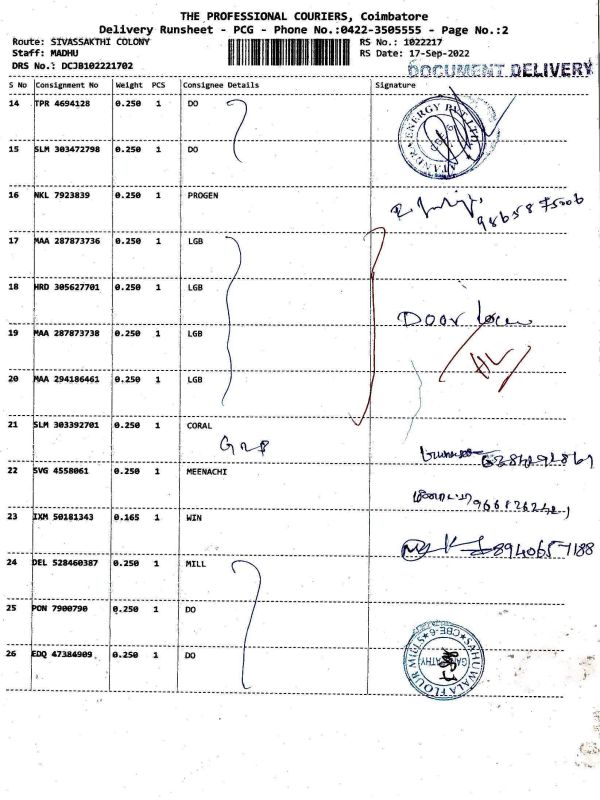 THE PROFESSIONAL COURIERS, Coimbatore
Delivery Runsheet - PCG - Phone No.:0422-3505555 - Page No.:2
Route: SIVASSAKTHI COLONY RS No.: 1022217
Staff: MADHU RS Date: 17-Sep-2022
DRS No.: DCJB102221702 DOCUMENT DELIVERY
S No Consignment No Weight PCS Consignee Details Signature
14 TPR 4694128 0.250 1 DO
15 SLM 303472798 0.250 1 DO
16 NKL 7923839 0.250 1 PROGEN
17 MAA 287873736 0.250 1 LGB
18 HRD 305627701 0.250 1 LGB
Door
19 MAA 287873738 0.250 1 LGB
20 MAA 294186461 0.250 1 LGB
21 SLM 303392701 0.250 1 CORAL
22 SVG 4558061 0.250 1 MEENACHI
23 IXM 50181343 0.165 1 WIN
8940657188
24 DEL 528460387 0.250 1 MILL
25 PON 7900790 0.250 1 DO
26 EDQ 47384909 0.250 1 DO
SAHUWALA FLOUR MILLS
CBE-6